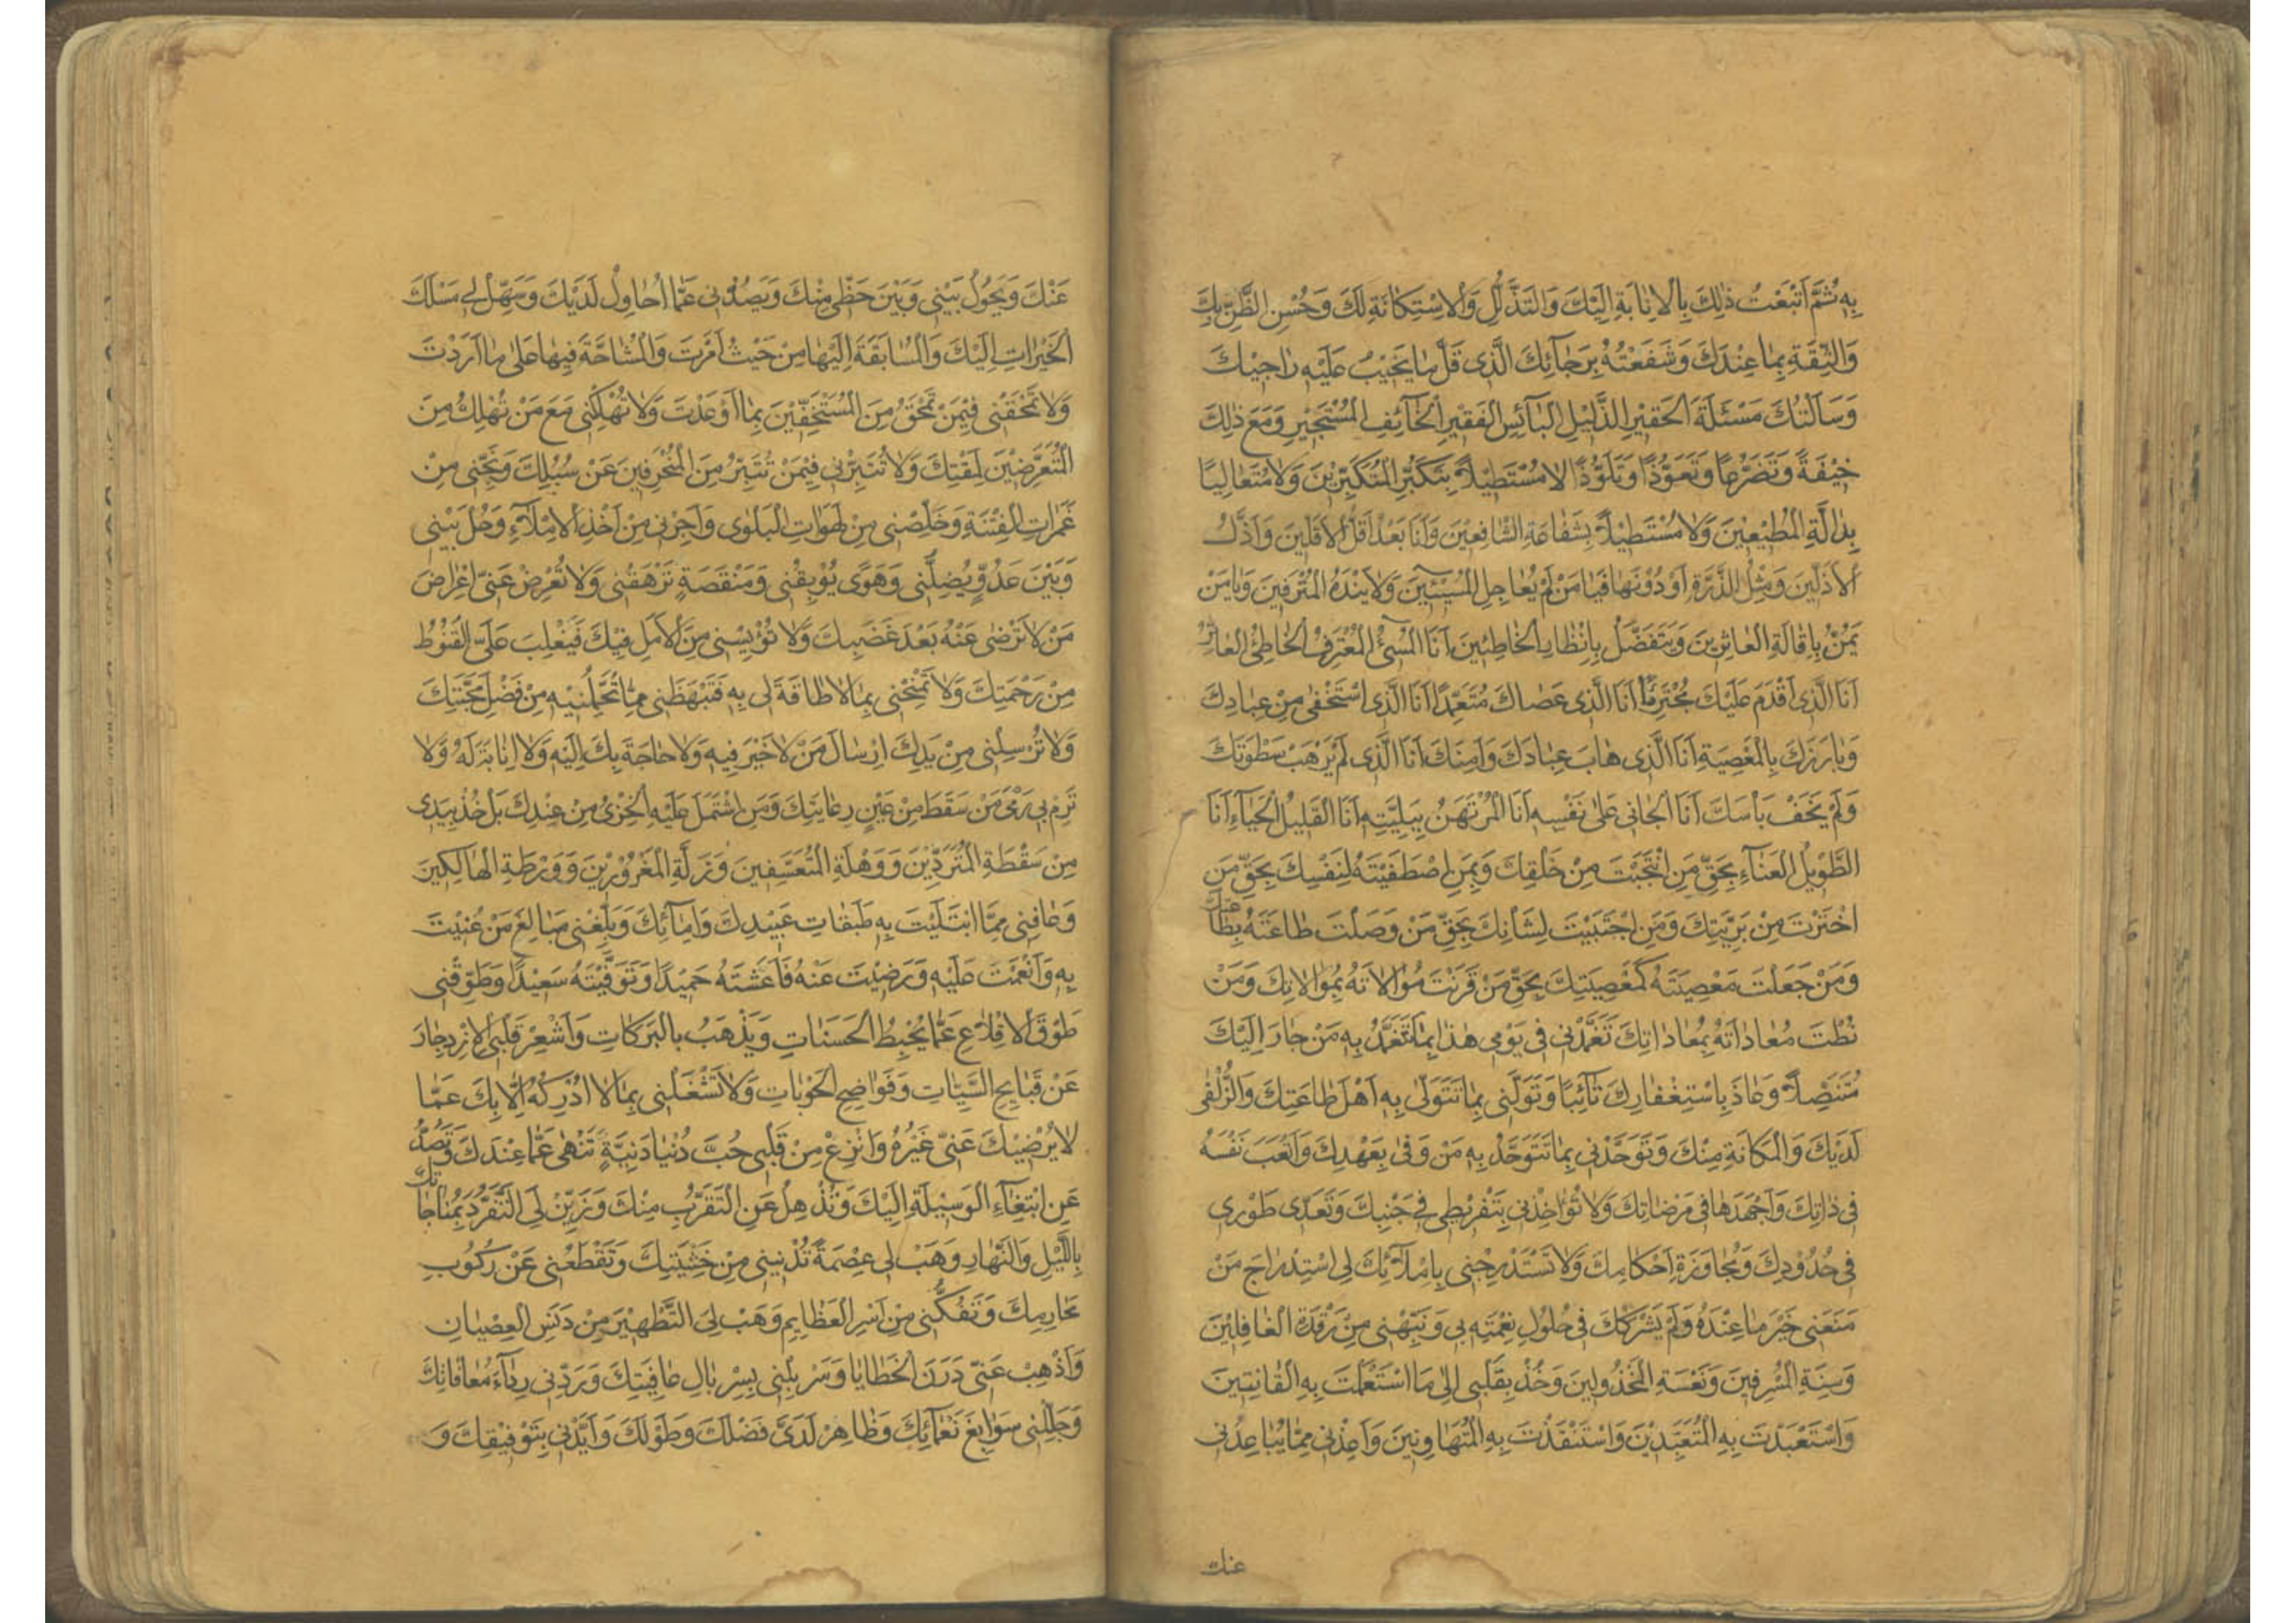 بِهِ ثُمَّ اَتْبَعْتُ ذٰلِكَ بِالْاِنَابَةِ اِلَيْكَ وَالتَّذَلُّلِ وَالْاِسْتِكَانَةِ لَكَ وَحُسْنِ الظَّنِّ بِكَ
وَالثِّقَةِ بِمَا عِنْدَكَ وَشَفَعْتُهُ بِرَجَآئِكَ الَّذى قَلَّ مَا يَخيْبُ عَلَيْهِ رَاجيْكَ
وَسَاَلْتُكَ مَسْئَلَةَ الْحَقيْرِ الذَّليْلِ الْبَآئِسِ الْفَقيْرِ الْخَآئِفِ الْمُسْتَجيْرِ وَمَعَ ذٰلِكَ
خيْفَةً وَتَضَرُّعًا وَتَعَوُّذًا وَتَلَوُّذًا لَا مُسْتَطيْلاً بِتَكَبُّرِ الْمُتَكَبِّريْنَ وَلَا مُتَعَالِيًا
بِدٰالَّةِ الْمُطيْعيْنَ وَلَا مُسْتَطيْلاً بِشَفَاعَةِ الشَّافِعيْنَ وَاَنَا بَعْدُ اَقَلُّ الْاَقَلّيْنَ وَاَذَلُّ
الْاَذَلّيْنَ وَمِثْلُ الذَّرَّةِ اَوْ دُوْنَهَا فَيَا مَنْ لَمْ يُعَاجِلِ الْمُسيْئيْنَ وَلَا يَنْدَهُ الْمُتْرَفيْنَ وَيَا مَنْ
يَمُنُّ بِاِقَالَةِ الْعَاثِريْنَ وَيَتَفَضَّلُ بِاِنْظَارِ الْخَاطِئيْنَ اَنَا الْمُسيْٓئُ الْمُعْتَرِفُ الْخَاطِئُ الْعَاثِرُ
اَنَا الَّذى اَقْدَمَ عَلَيْكَ مُجْتَرِمًا اَنَا الَّذى عَصَاكَ مُتَعَمِّدًا اَنَا الَّذى اسْتَخْفٰى مِنْ عِبَادِكَ
وَبَارَزَكَ بِالْمَعْصِيَةِ اَنَا الَّذى هَابَ عِبَادَكَ وَاَمِنَكَ اَنَا الَّذى لَمْ يَرْهَبْ سَطْوَتَكَ
وَلَمْ يَخَفْ بَاْسَكَ اَنَا الْجَانى عَلٰى نَفْسِهِ اَنَا الْمُرْتَهَنُ بِبَلِيَّتِهِ اَنَا الْقَليْلُ الْحَيَآءِ اَنَا
الطَّويْلُ الْعَنَآءِ بِحَقِّ مَنِ انْتَجَبْتَ مِنْ خَلْقِكَ وَبِمَنِ اصْطَفَيْتَهُ لِنَفْسِكَ بِحَقِّ مَنِ
اخْتَرْتَ مِنْ بَرِيَّتِكَ وَمَنِ اجْتَبَيْتَ لِشَاْنِكَ بِحَقِّ مَنْ وَصَلْتَ طَاعَتَهُ بِطَاعَتِكَ
وَمَنْ جَعَلْتَ مَعْصِيَتَهُ كَمَعْصِيَتِكَ بِحَقِّ مَنْ قَرَنْتَ مُوَالَاتَهُ بِمُوَالَاتِكَ وَمَنْ
نُطْتَ مُعَادَاتَهُ بِمُعَادَاتِكَ تَغَمَّدْنى فى يَوْمى هٰذَا بِمَا تَتَغَمَّدُ بِهِ مَنْ جَارَ اِلَيْكَ
مُتَنَصِّلاً وَعَاذَ بِاسْتِغْفَارِكَ تَآئِبًا وَتَوَلَّنى بِمَا تَتَوَلّٰى بِهِ اَهْلَ طَاعَتِكَ وَالزُّلْفٰى
لَدَيْكَ وَالْمَكَانَةِ مِنْكَ وَتَوَحَّدْنى بِمَا تَتَوَحَّدُ بِهِ مَنْ وَفٰى بِعَهْدِكَ وَاَتْعَبَ نَفْسَهُ
فى ذَاتِكَ وَاَجْهَدَهَا فى مَرْضَاتِكَ وَلَا تُؤَاخِذْنى بِتَفْريْطى فى جَنْبِكَ وَتَعَدّى طَوْرى
فى حُدُوْدِكَ وَمُجَاوَزَةِ اَحْكَامِكَ وَلَا تَسْتَدْرِجْنى بِاِمْلَآئِكَ لى اسْتِدْرَاجَ مَنْ
مَنَعَنى خَيْرَ مَا عِنْدَهُ وَلَمْ يَشْرَكْكَ فى حُلُوْلِ نِعْمَتِهِ بى وَنَبِّهْنى مِنْ رَقْدَةِ الْغَافِليْنَ
وَسِنَةِ الْمُسْرِفيْنَ وَنَعْسَةِ الْمَخْذُوْليْنَ وَخُذْ بِقَلْبى اِلٰى مَا اسْتَعْمَلْتَ بِهِ الْقَانِتيْنَ
وَاسْتَعْبَدْتَ بِهِ الْمُتَعَبِّديْنَ وَاسْتَنْقَذْتَ بِهِ الْمُتَهَاوِنيْنَ وَاَعِذْنى مِمَّا يُبَاعِدُنى
عنك
عَنْكَ وَيَحُوْلُ بَيْنى وَبَيْنَ حَظّى مِنْكَ وَيَصُدُّنى عَمَّا اُحَاوِلُ لَدَيْكَ وَسَهِّلْ لى مَسْلَكَ
الْخَيْرَاتِ اِلَيْكَ وَالْمُسَابَقَةَ اِلَيْهَا مِنْ حَيْثُ اَمَرْتَ وَالْمُشَاحَّةَ فِيْهَا عَلٰى مَا اَرَدْتَ
وَلَا تَمْحَقْنى فيْمَنْ تَمْحَقُ مِنَ الْمُسْتَخِفّيْنَ بِمَا اَوْعَدْتَ وَلَا تُهْلِكْنى مَعَ مَنْ تُهْلِكُ مِنَ
الْمُتَعَرِّضيْنَ لِمَقْتِكَ وَلَا تُتَبِّرْنى فيْمَنْ تُتَبِّرُ مِنَ الْمُنْحَرِفيْنَ عَنْ سُبُلِكَ وَنَجِّنى مِنْ
غَمَرَاتِ الْفِتْنَةِ وَخَلِّصْنى مِنْ لَهَوَاتِ الْبَلْوٰى وَاَجِرْنى مِنْ اَخْذِ الْاِمْلَآءِ وَحُلْ بَيْنى
وَبَيْنَ عَدُوٍّ يُضِلُّنى وَهَوًى يُوْبِقُنى وَمَنْقَصَةٍ تَرْهَقُنى وَلَا تُعْرِضْ عَنّى اِعْرَاضَ
مَنْ لَا تَرْضٰى عَنْهُ بَعْدَ غَضَبِكَ وَلَا تُؤْيِسْنى مِنَ الْاَمَلِ فيْكَ فَيَغْلِبَ عَلَىَّ الْقُنُوْطُ
مِنْ رَحْمَتِكَ وَلَا تَمْنَحْنى بِمَا لَا طَاقَةَ لى بِهِ فَتَبْهَظَنى مِمَّا تُحَمِّلُنيْهِ مِنْ فَضْلِ مَحَبَّتِكَ
وَلَا تُرْسِلْنى مِنْ يَدِكَ اِرْسَالَ مَنْ لَا خَيْرَ فِيْهِ وَلَا حَاجَةَ بِكَ اِلَيْهِ وَلَا اِنَابَةَ لَهُ وَلَا
تَرْمِ بى رَمْىَ مَنْ سَقَطَ مِنْ عَيْنِ رِعَايَتِكَ وَمَنِ اشْتَمَلَ عَلَيْهِ الْخِزْىُ مِنْ عِنْدِكَ بَلْ خُذْ بِيَدى
مِنْ سَقْطَةِ الْمُتَرَدّيْنَ وَوَهْلَةِ الْمُتَعَسِّفيْنَ وَزَلَّةِ الْمَغْرُوْريْنَ وَوَرْطَةِ الْهَالِكيْنَ
وَعَافِنى مِمَّا ابْتَلَيْتَ بِهِ طَبَقَاتِ عَبيْدِكَ وَاِمَآئِكَ وَبَلِّغْنى مَبَالِغَ مَنْ عُنيْتَ
بِهِ وَاَنْعَمْتَ عَلَيْهِ وَرَضيْتَ عَنْهُ فَاَعَشْتَهُ حَميْدًا وَتَوَفَّيْتَهُ سَعيْدًا وَطَوِّقْنى
طَوْقَ الْاِقْلَاعِ عَمَّا يُحْبِطُ الْحَسَنَاتِ وَيَذْهَبُ بِالْبَرَكَاتِ وَاَشْعِرْ قَلْبِىَ الْاِزْدِجَارَ
عَنْ قَبَايِحِ السَّيِّئَاتِ وَفَوَاضِحِ الْحَوْبَاتِ وَلَا تَشْغَلْنى بِمَا لَا اُدْرِكُهُ اِلَّا بِكَ عَمَّا
لَا يُرْضيْكَ عَنّى غَيْرُهُ وَانْزِعْ مِنْ قَلْبى حُبَّ دُنْيَا دَنِيَّةٍ تَنْهٰى عَمَّا عِنْدَكَ وَتَصُدُّ
عَنِ ابْتِغَآءِ الْوَسيْلَةِ اِلَيْكَ وَتُذْهِلُ عَنِ التَّقَرُّبِ مِنْكَ وَزَيِّنْ لِىَ التَّفَرُّدَ بِمُنَاجَاتِكَ
بِاللَّيْلِ وَالنَّهَارِ وَهَبْ لى عِصْمَةً تُدْنِيْنى مِنْ خَشْيَتِكَ وَتَقْطَعُنى عَنْ رُكُوْبِ
مَحَارِمِكَ وَتَفُكُّنى مِنْ اَسْرِ الْعَظَايِمِ وَهَبْ لِىَ التَّطْهيْرَ مِنْ دَنَسِ الْعِصْيَانِ
وَاَذْهِبْ عَنّى دَرَنَ الْخَطَايَا وَسَرْبِلْنى بِسِرْبَالِ عَافِيَتِكَ وَرَدِّنى رِدَآءَ مُعَافَاتِكَ
وَجَلِّلْنى سَوَابِغَ نَعْمَآئِكَ وَظَاهِرْ لَدَىَّ فَضْلَكَ وَطَوْلَكَ وَاَيِّدْنى بِتَوْفيْقِكَ وَ